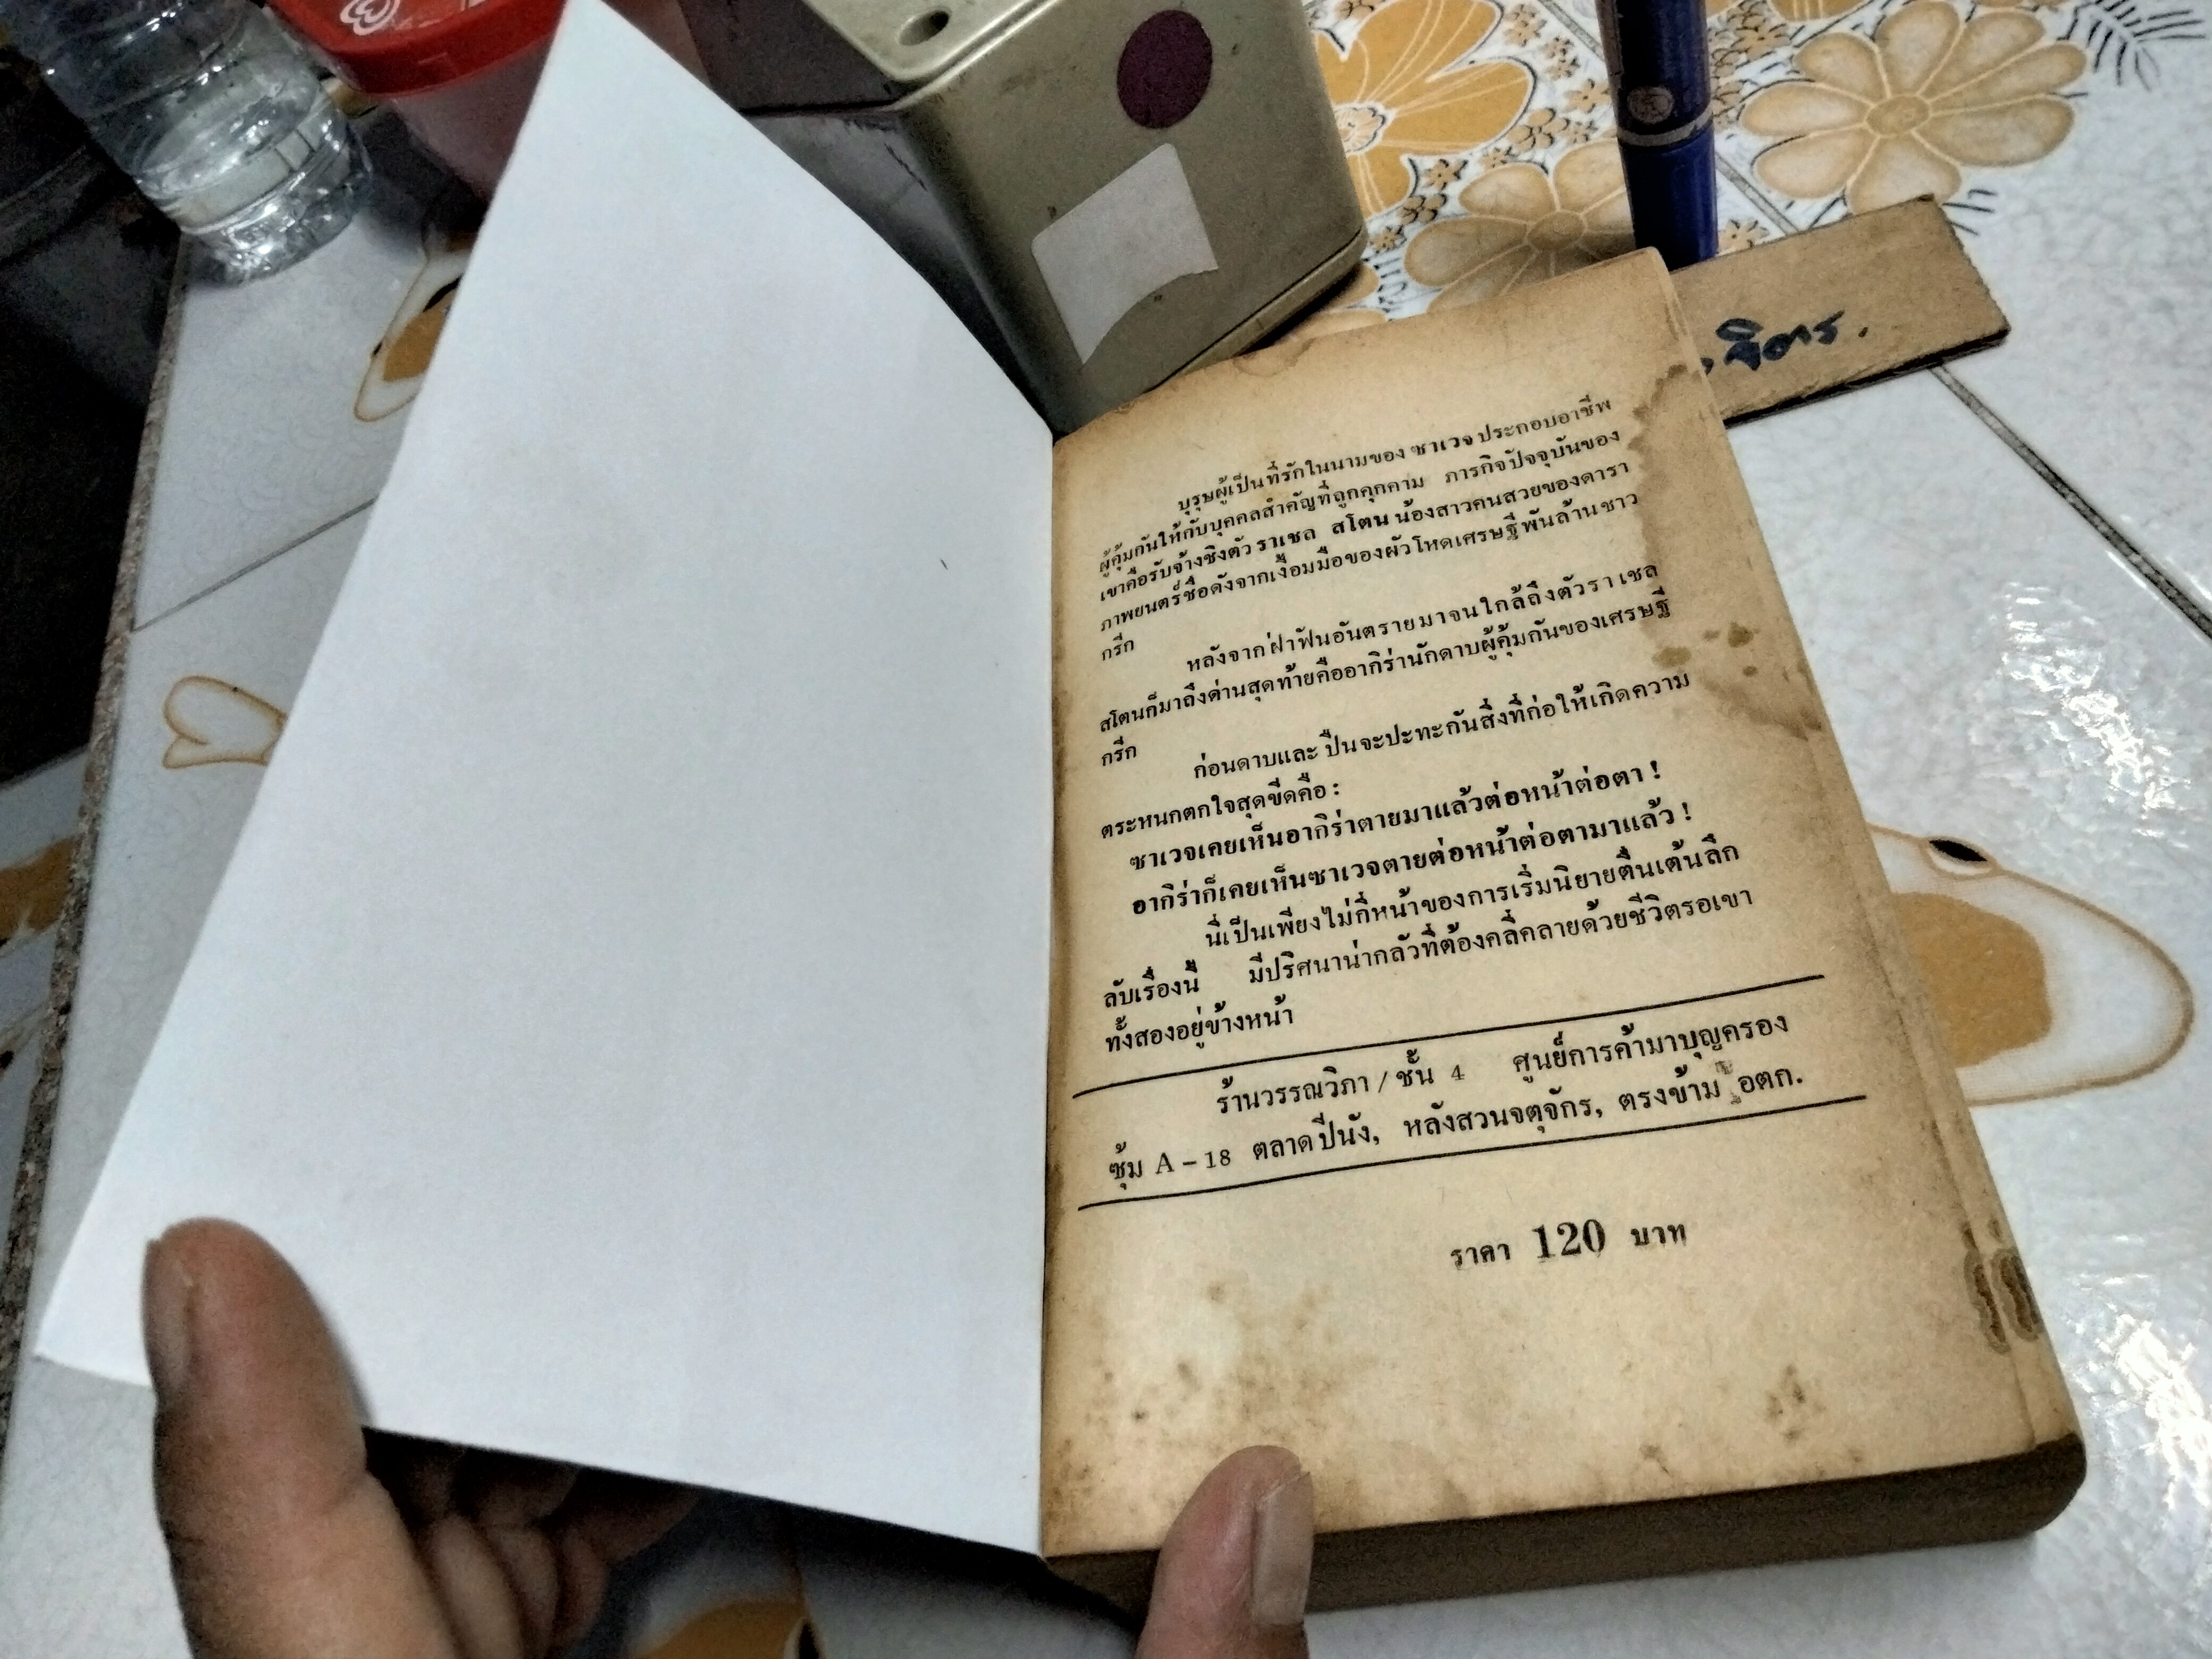 จิตร.
บุรุษผู้เป็นที่รักในนามของ ซาเวจ ประกอบอาชีพ
ผู้คุ้มกันให้กับบุคคลสำคัญที่ถูกคุกคาม ภารกิจปัจจุบันของ
เขาคือรับจ้างชิงตัว ราเชล สโตน น้องสาวคนสวยของดารา
ภาพยนตร์ชื่อดังจากเงื้อมมือของผัวโหดเศรษฐีพันล้านชาว
กรีก
หลังจากฝ่าฟันอันตรายมาจนใกล้ถึงตัวราเชล
สโตนก็มาถึงด่านสุดท้ายคืออากิร่านักดาบผู้คุ้มกันของเศรษฐี
กรีก
ก่อนดาบและปืนจะปะทะกันสิ่งที่ก่อให้เกิดความ
ตระหนกตกใจสุดขีดคือ :
ซาเวจเคยเห็นอากิร่าตายมาแล้วต่อหน้าต่อตา !
อากิร่าก็เคยเห็นซาเวจตายต่อหน้าต่อตามาแล้ว !
นี่เป็นเพียงไม่กี่หน้าของการเริ่มนิยายตื่นเต้นลึก
ลับเรื่องนี้ มีปริศนาน่ากลัวที่ต้องคลี่คลายด้วยชีวิตรอเขา
ทั้งสองอยู่ข้างหน้า
ร้านวรรณวิภา / ชั้น 4 ศูนย์การค้ามาบุญครอง
ซุ้ม A – 18 ตลาดปีนัง, หลังสวนจตุจักร, ตรงข้าม อตก.
ราคา 120 บาท